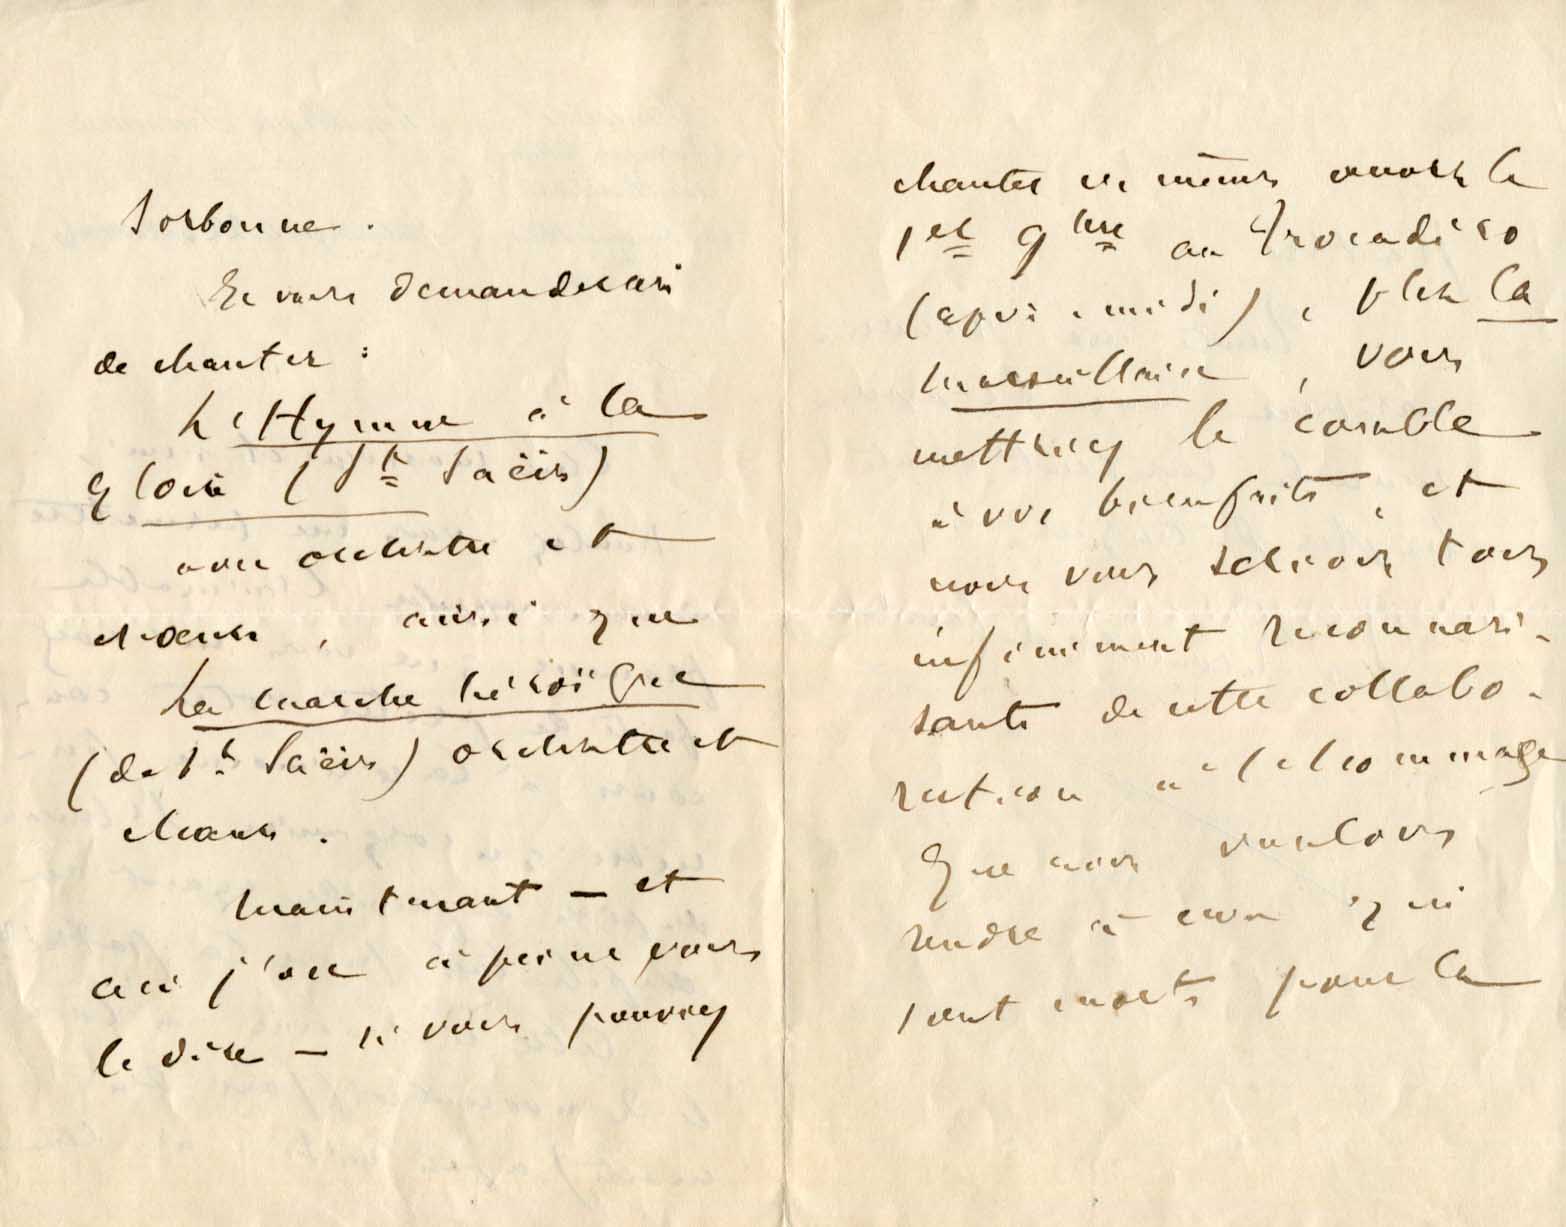 Sorbonne.
Je vous demanderais
de chanter :
L'Hymne à la
gloire (St Saëns)
avec orchestre et
chœurs, ainsi que
La marche héroïque
(de St Saëns) orchestre et
chœurs.
Maintenant — et
ceci j'ose à peine vous
le dire — si vous pouviez
chanter ce même
1er 9bre au Trocadéro
(après-midi), la
Marseillaise, vous
mettriez le comble
à vos bienfaits, et
nous vous serions tous
infiniment reconnais-
sants de cette collabo-
ration à l'hommage
que nous voulons
rendre à ceux qui
sont morts pour la